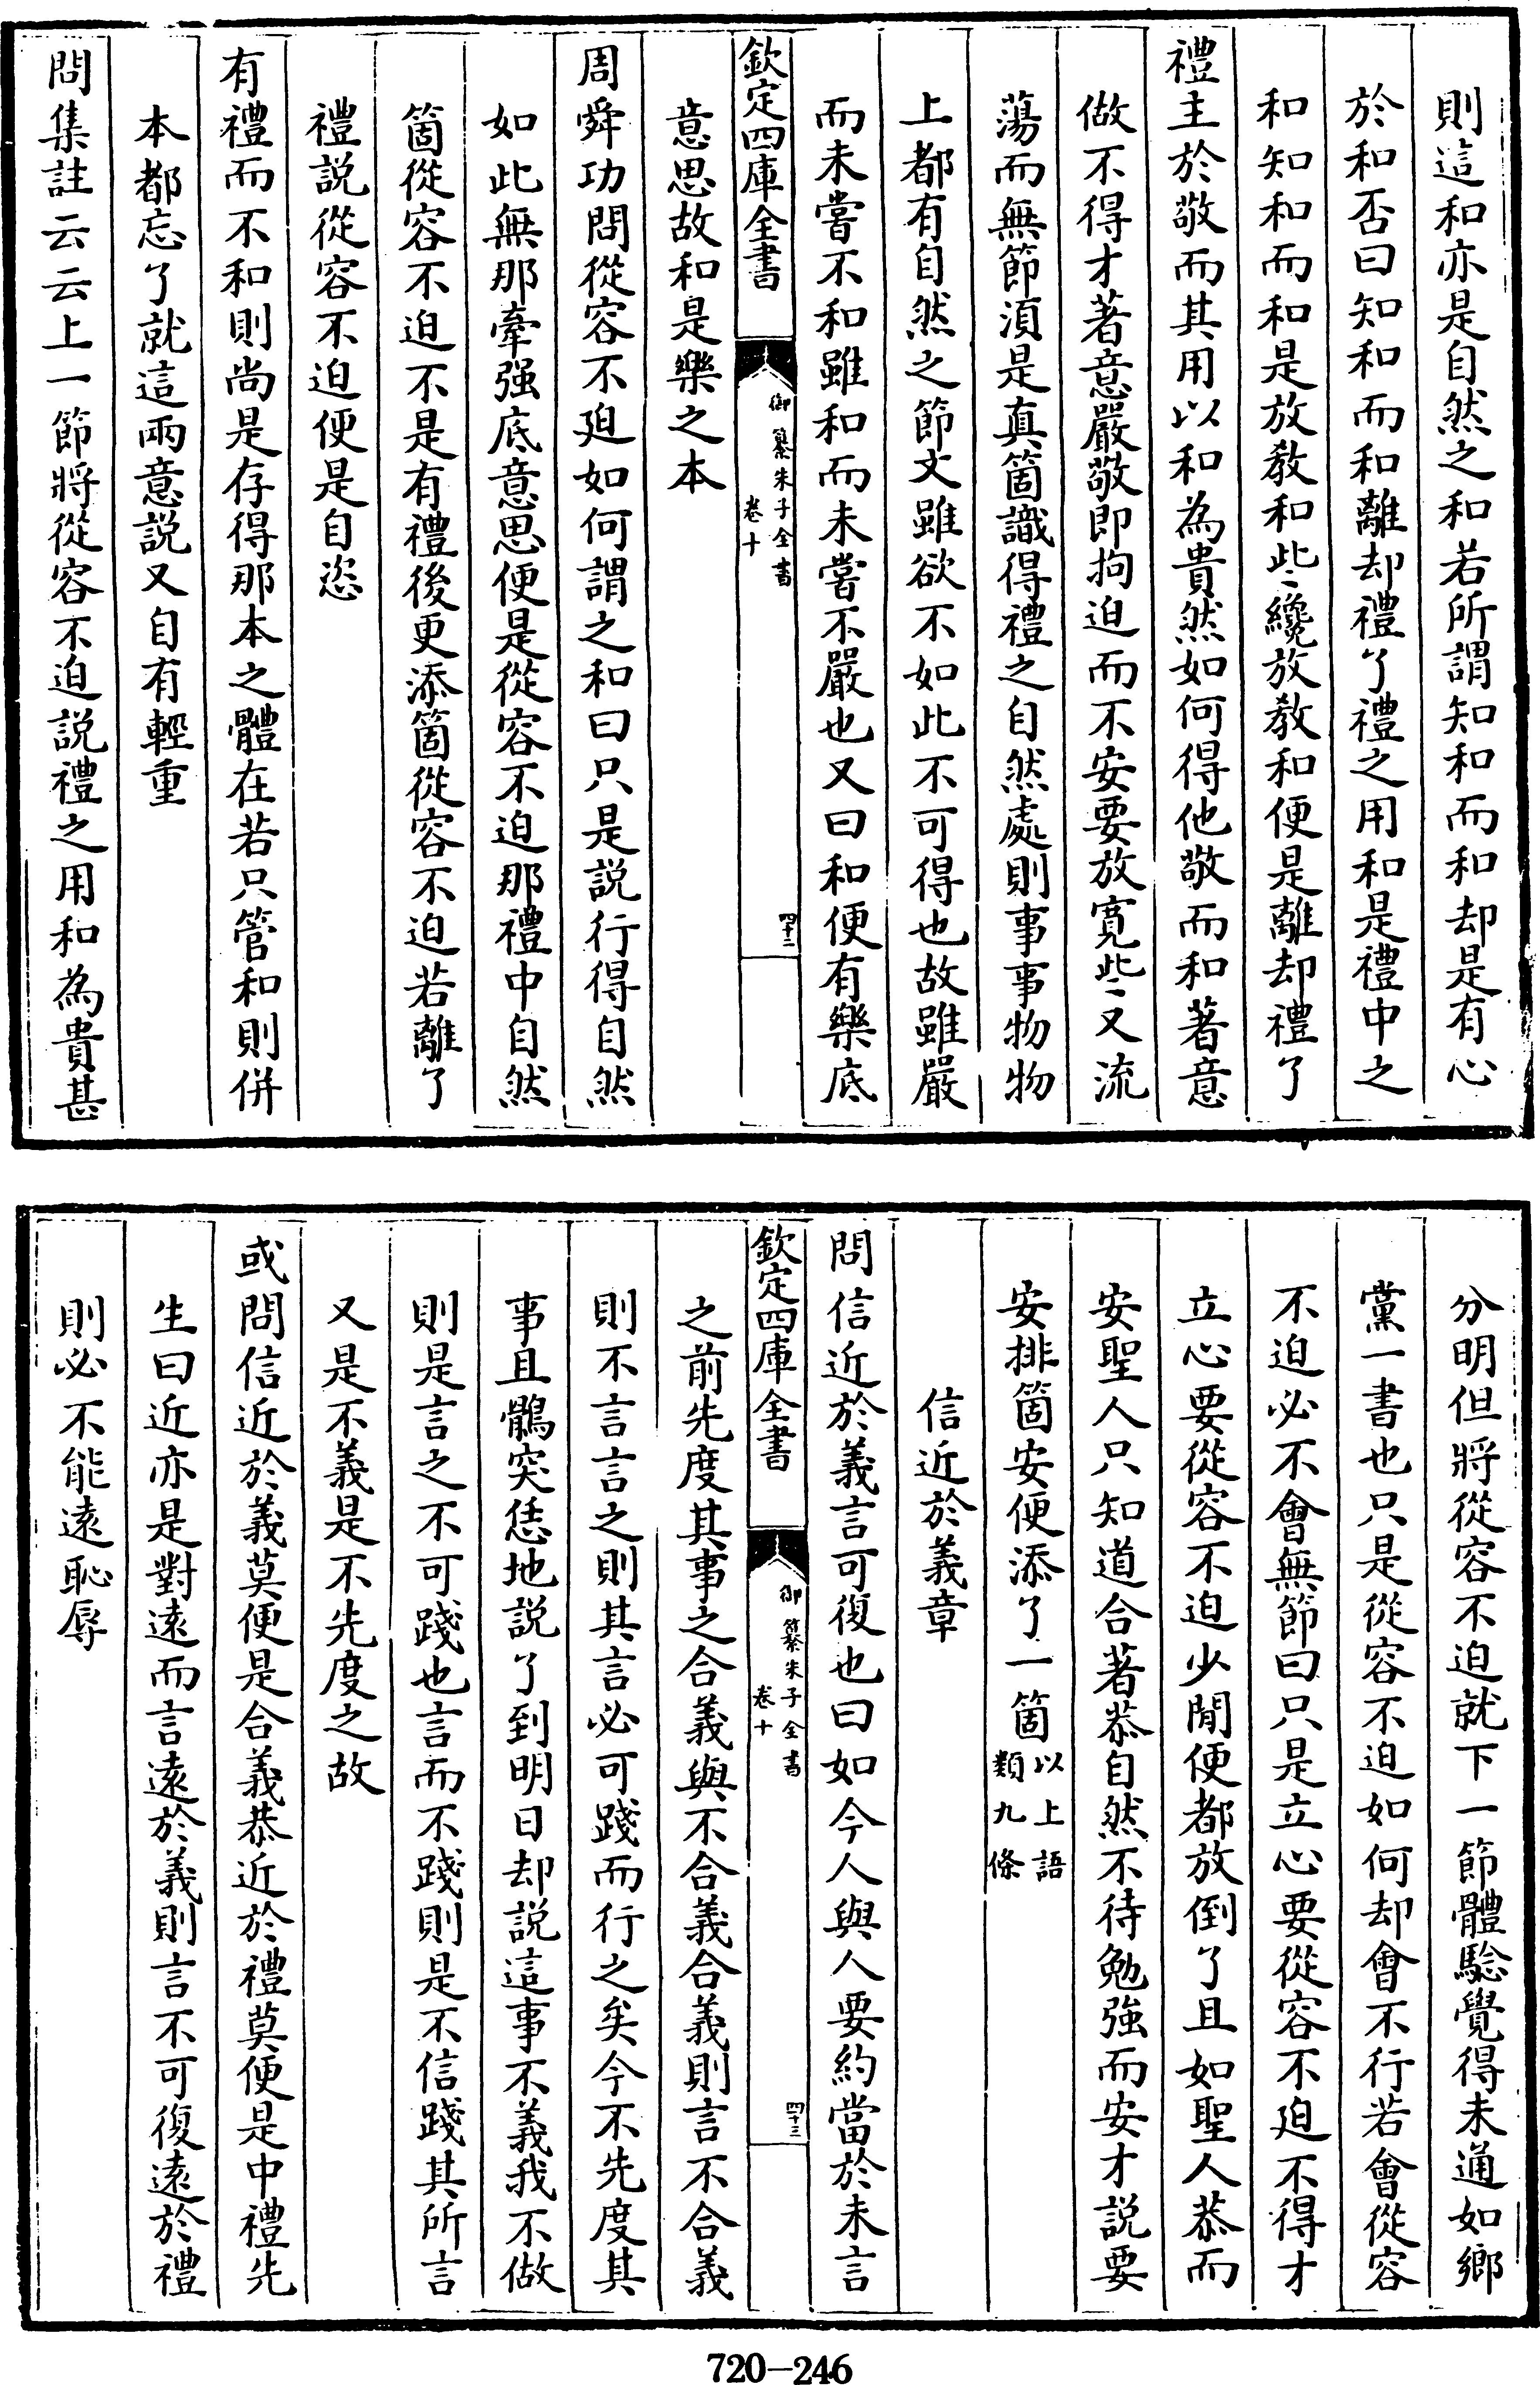 則這和亦是自然之和若所謂知和而和却是有心
於和否曰知和而和離却禮了禮之用和是禮中之
和知和而和是放教和些纔放教和便是離却禮了
禮主於敬而其用以和為貴然如何得他敬而和著意
做不得才著意嚴敬即拘迫而不安要放寛些又流
蕩而無節須是真箇識得禮之自然處則事事物物
上都有自然之節文雖欲不如此不可得也故雖嚴
而未嘗不和雖和而未嘗不嚴也又曰和便有樂底
欽定四庫全書
御纂朱子全書
卷十
四十二
意思故和是樂之本
周舜功問從容不廹如何謂之和曰只是説行得自然
如此無那牽强底意思便是從容不迫那禮中自然
箇從容不迫不是有禮後更添箇從容不迫若離了
禮説從容不迫便是自恣
有禮而不和則尚是存得那本之體在若只管和則併
本都忘了就這兩意説又自有輕重
問集註云云上一節將從容不迫説禮之用和為貴甚
分明但將從容不迫就下一節體騐覺得未通如鄉
黨一書也只是從容不迫如何却會不行若會從容
不迫必不會無節曰只是立心要從容不廹不得才
立心要從容不迫少間便都放倒了且如聖人恭而
安聖人只知道合著恭自然不待勉強而安才説要
安排箇安便添了一箇以上語
類九條
信近於義章
問信近於義言可復也曰如今人與人要約當於未言
欽定四庫全書
御纂朱子全書
卷十
四十三
之前先度其事之合義與不合義合義則言不合義
則不言言之則其言必可踐而行之矣今不先度其
事且鶻突恁地説了到明日却説這事不義我不做
則是言之不可踐也言而不踐則是不信踐其所言
又是不義是不先度之故
或問信近於義莫便是合義恭近於禮莫便是中禮先
生曰近亦是對遠而言遠於義則言不可復遠於禮
則必不能遠恥辱
720-246